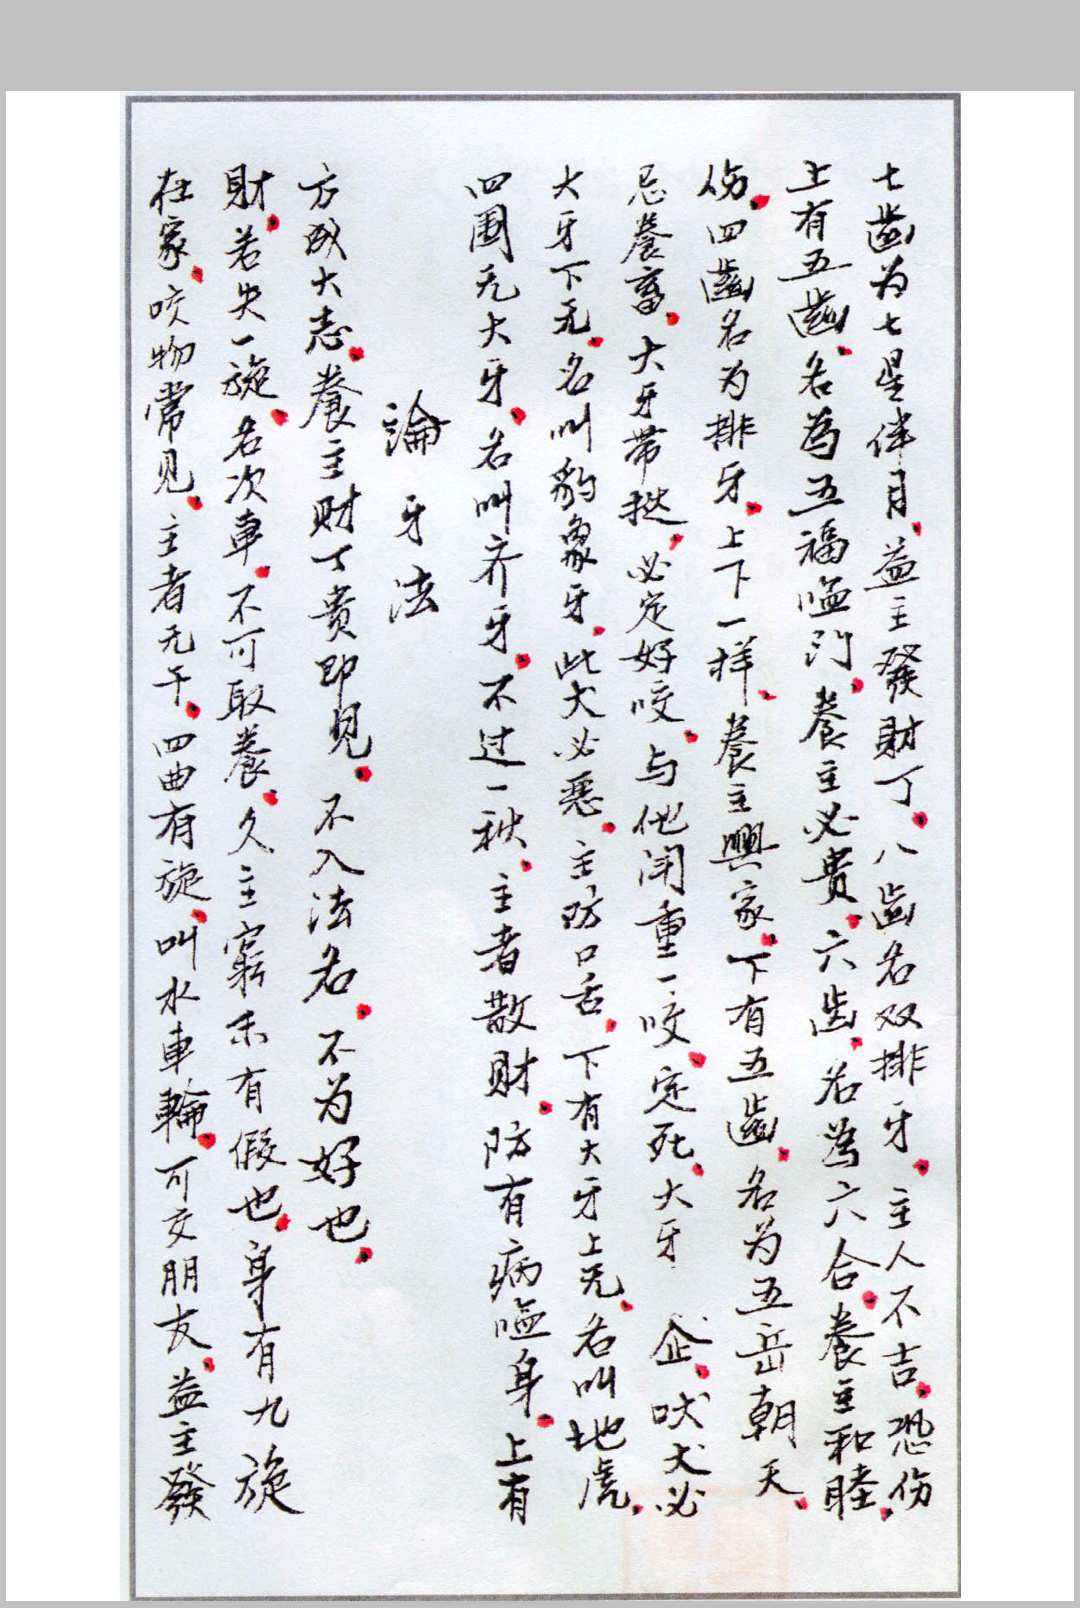 七齒为七星伴月。益主發財丁。八齒名双排牙。主人不吉。恐伤
上有五齒。名為五福临门。養主必貴。六齿。名為六合。養主和睦。
伤。四齒名为排牙。上下一样。養主興家。下有五齒。名为五岳朝天。
忌養畜。大牙带挞。必定好咬。与他闹重一咬。定死。大牙 企。吠犬必
大牙下无。名叫豹象牙。此犬必恶。主防口舌。下有大牙上无。名叫地虎。
四围无大牙。名叫齐牙。不过一秧。主者散財。防有病临身。上有
論牙法
方成大志。養主财丁贵即見。不入法名。不为好也。
財。若失一旋。名次車。不可取養。久主窮未有假也。身有九旋
在家。咬物常見。主者无午。四曲有旋。叫水車輪。可交朋友。益主發